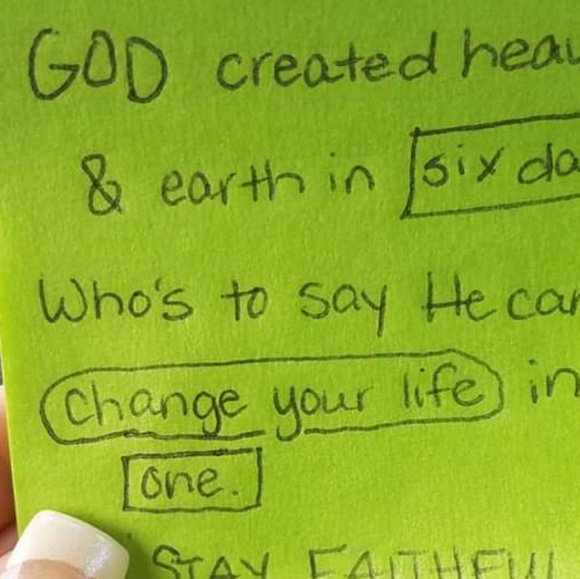 GOD created heav
& earth in six da
Who's to say He can
change your life in
one.
STAY FAITHFUL